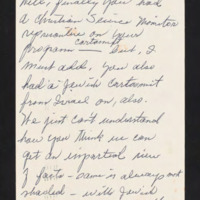 well, finally you had
a Christian Science Monitor
on your
cartoonist
program — But, I
must add, you also
had a Jewish cartoonist
from Israel on, also.
We just can't understand
how you think we can
get an impartial view
of facts — same is always not
shaded — with Jewish